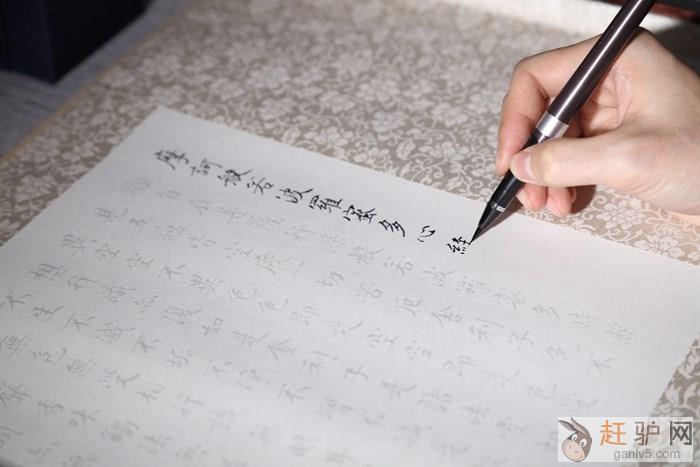 摩訶般若波羅蜜多心經
觀自在菩薩行深般若波羅蜜多時照
見五蘊皆空度一切苦厄舍利子色不
異空空不異色色即是空空即是色受
想行識亦復如是舍利子是諸法空
不生不滅不垢不淨不增不
無色無受想行識
聲香味觸法
赶驴网
ganlv5.com